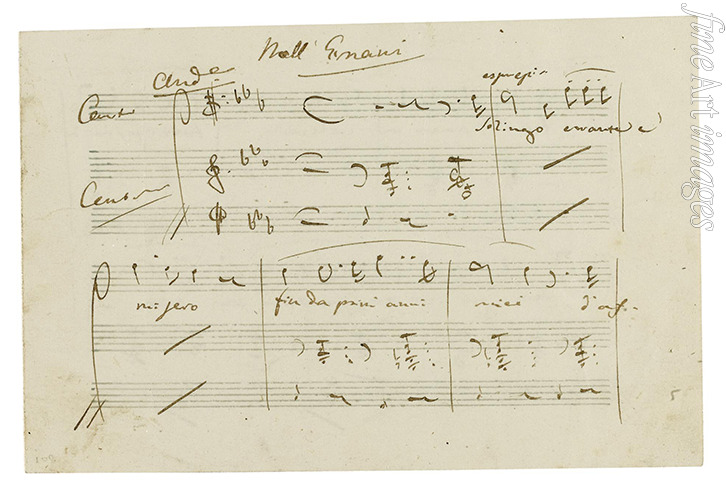 Nell' Ernani
And.e
espress.
Canto
Solingo errante e
misero
fin da primi anni miei d'af-
5
fine Art images